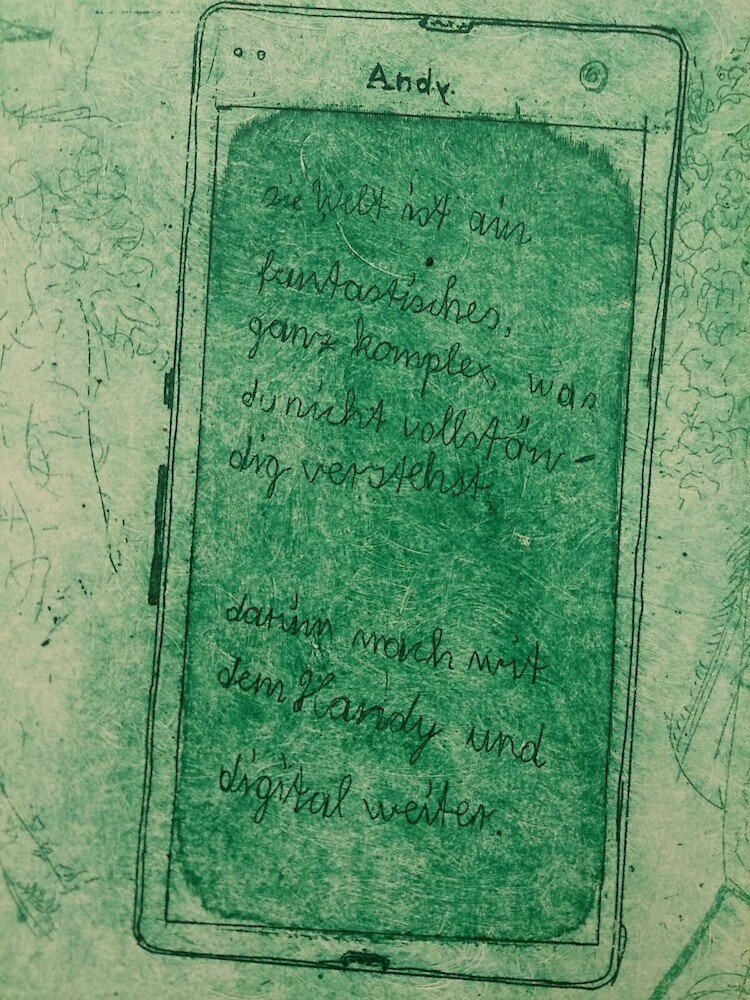 Andy.
die Welt ist ein
fantastisches,
ganz komplex, was
du nicht vollstän-
dig verstehst,
darum mach mit
dem Handy und
digital weiter.